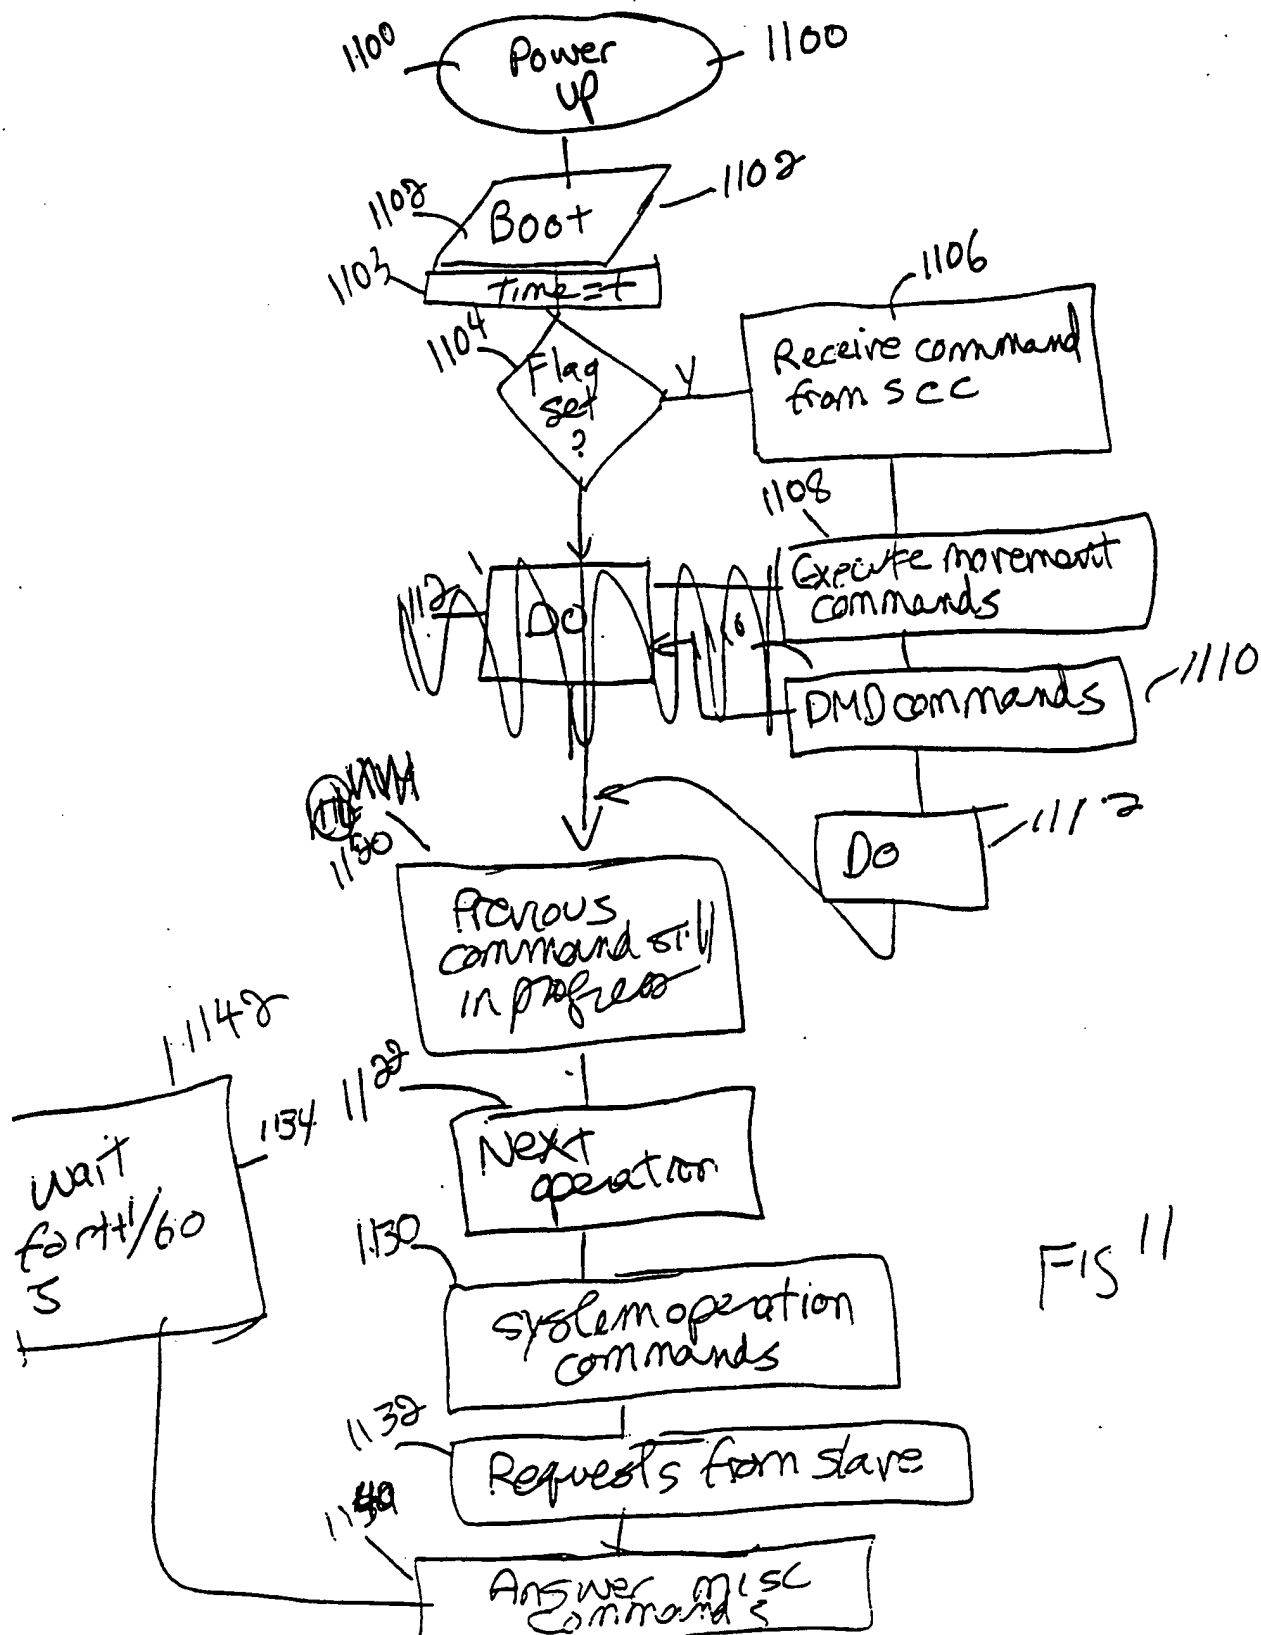 1100
Power
up
1100
1102
Boot
1102
1103
time=t
1104
Flag
set
?
Y
1106
Receive command
from SCC
1108
Execute movement
commands
1112
DO
DMD commands
1110
DO
1112
1120
Previous
command still
in progress
1122
Next
operation
1142
1134
wait
1/60
S
1130
system operation
commands
1132
Requests from slave
Answer misc
commands
FIG 11